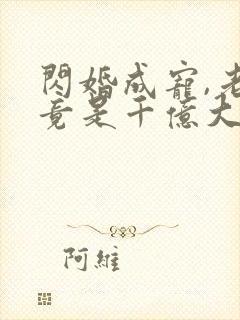 閃婚成寵,老
竟是千億大
阿維